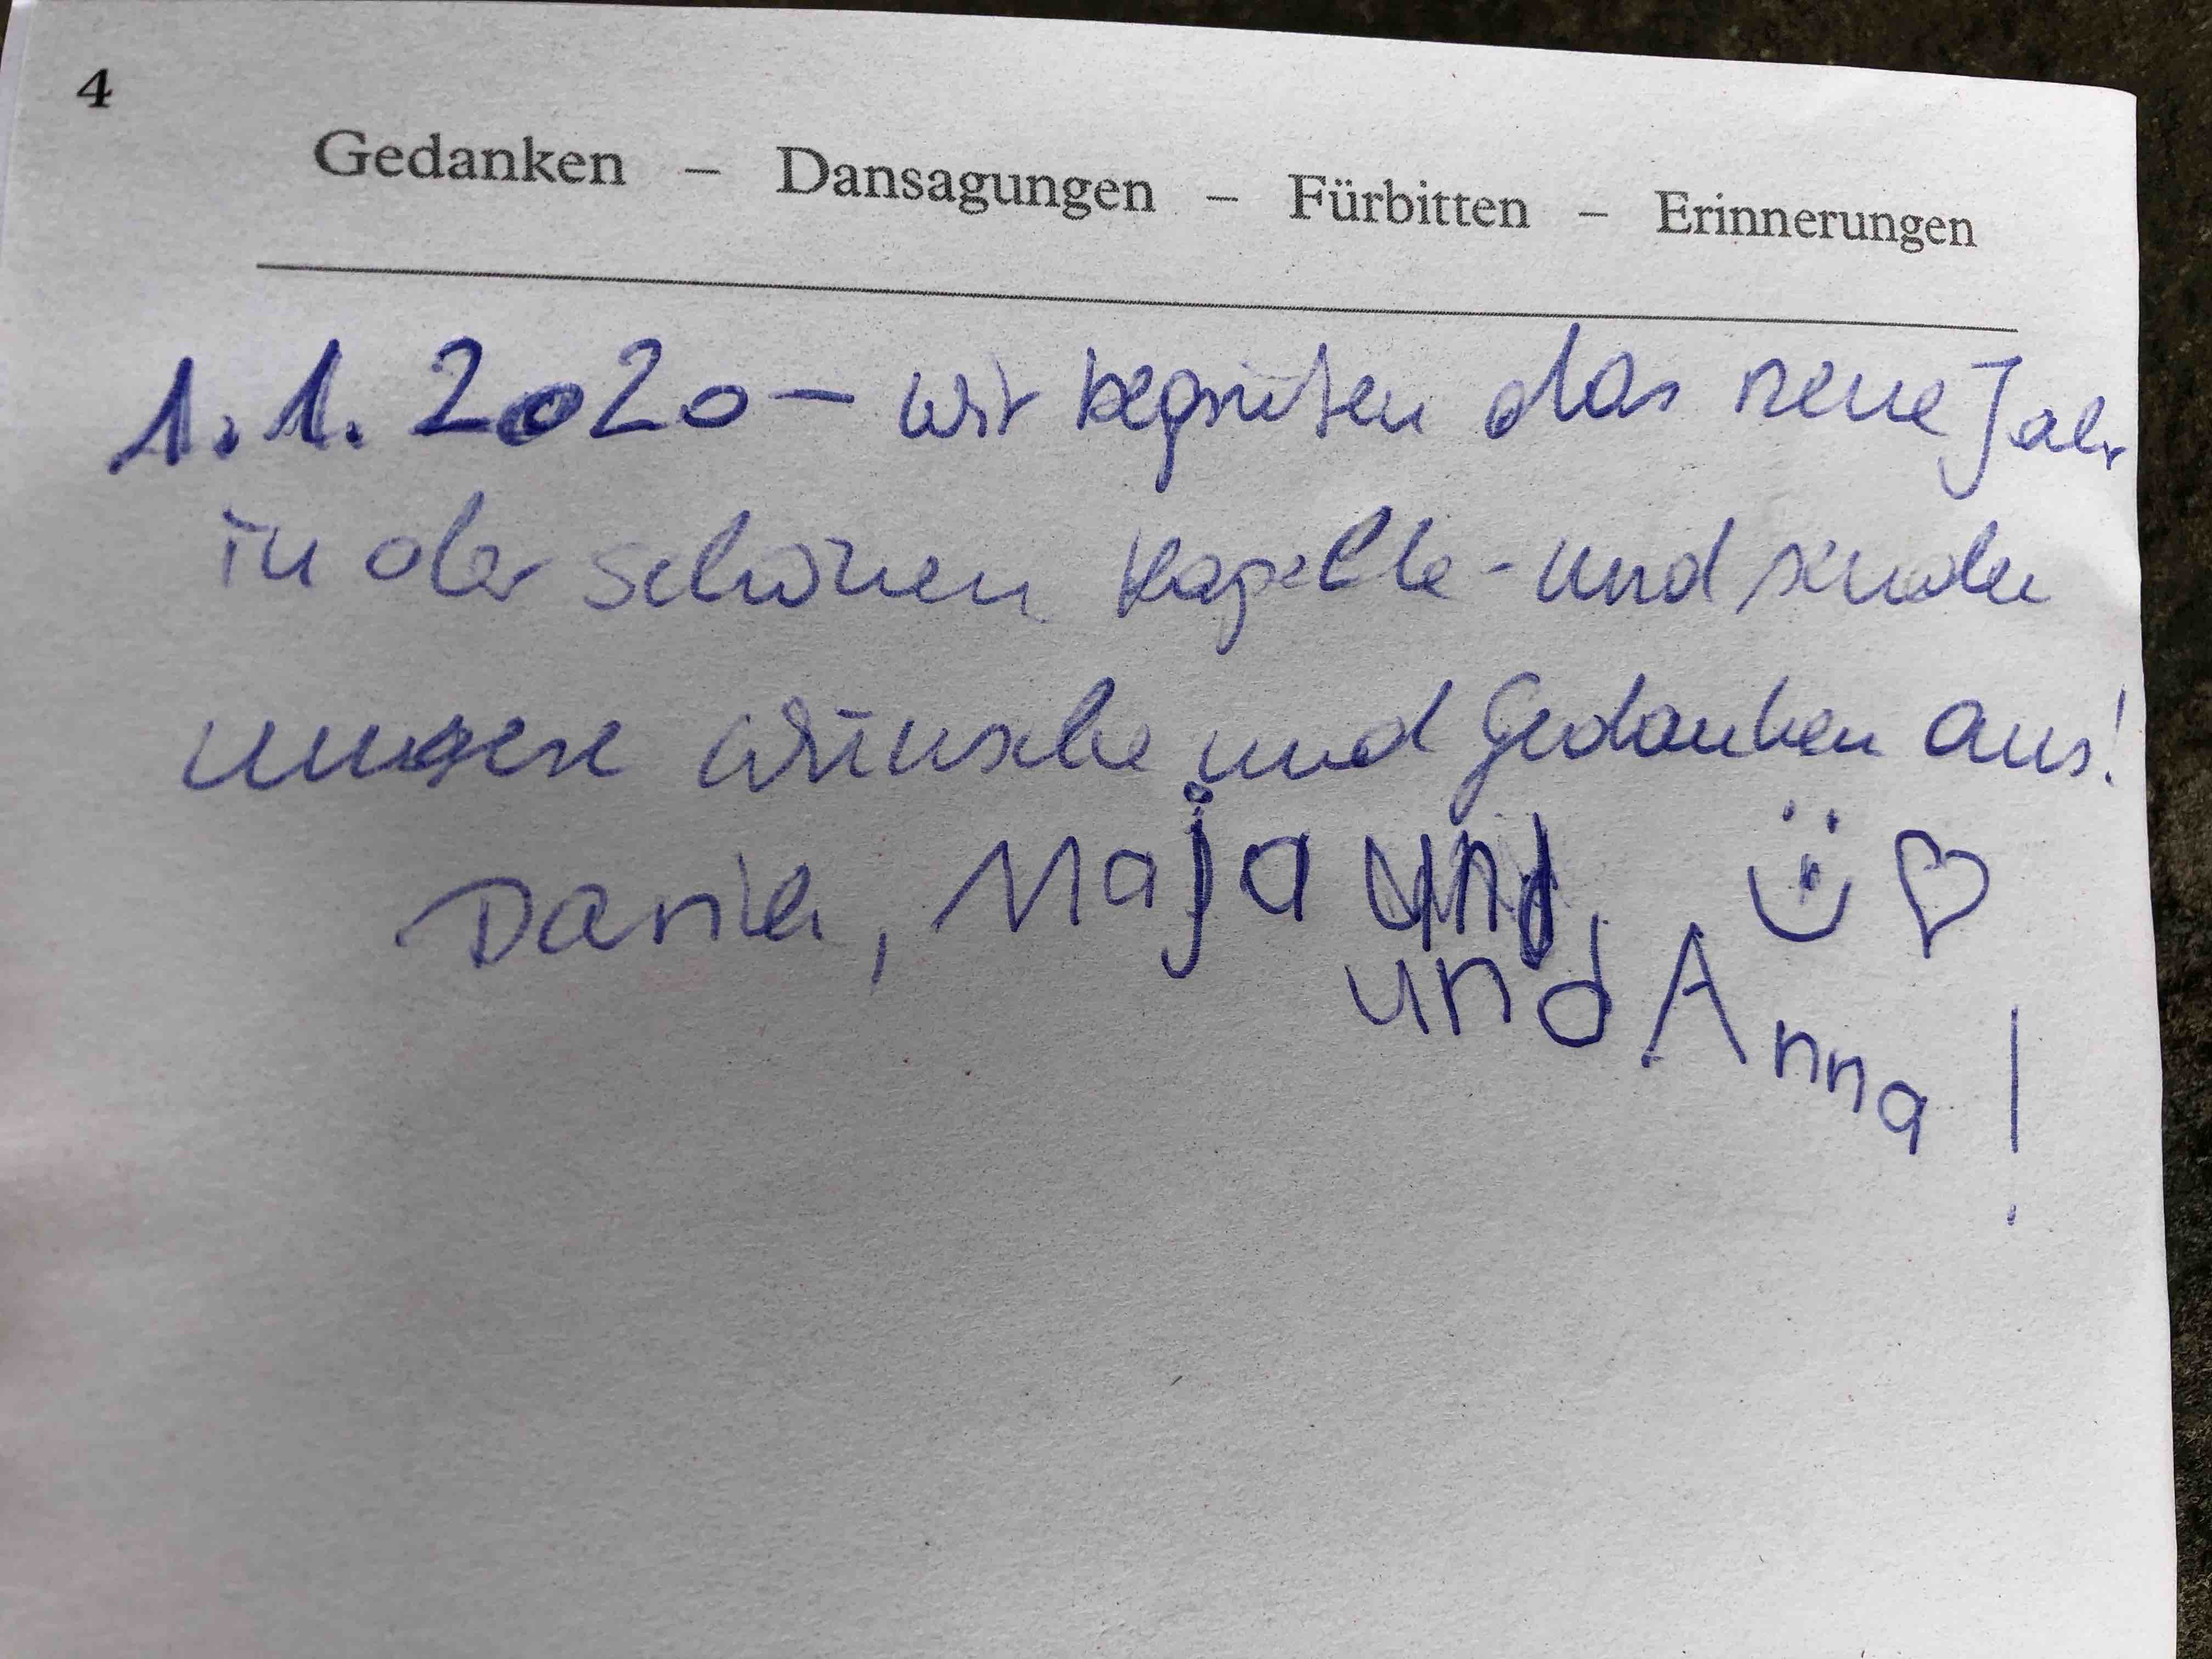 4
Gedanken – Dansagungen – Fürbitten – Erinnerungen
1.1.2020 – wir begrüßen das neue Jahr
in der schönen Kapelle - und senden
unsere Wünsche und Gedanken aus!
Maja und
und Anna!